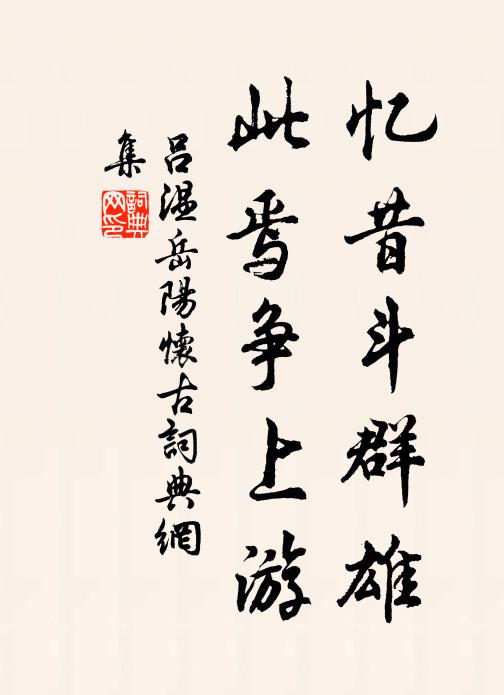 忆昔斗群雄
此焉争上游
吕温岳陽懷古詞典網
集
詞典网印